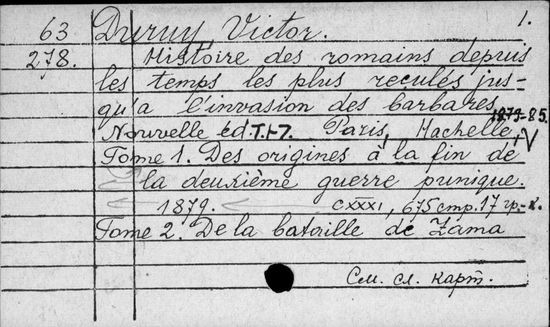 1.
63 Duruy, Victor.
278. Histoire des romains depuis
les temps les plus reculés jus-
qu'a l'invasion des barbares
1879-85.
Nouvelle éd. T. 1-7. Paris, Hachelle, + V
Tome 1. Des origines à la fin de
la deuxième guerre punique.
1879. CXXXI, 675 стр. 17 гр.-к.
Tome 2. De la bataille de Zama
См. сл. карт.